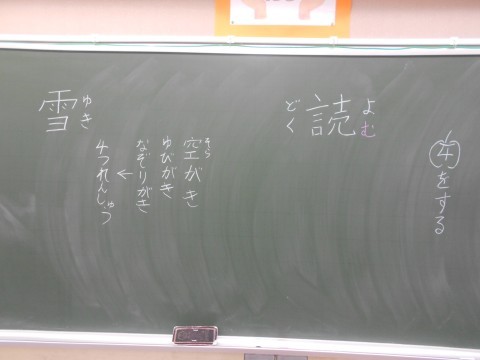 ④をする
読
よむ
どく
空がき
そら
ゆびがき
なぞりがき
←
4つれんしゅう
雪
ゆき